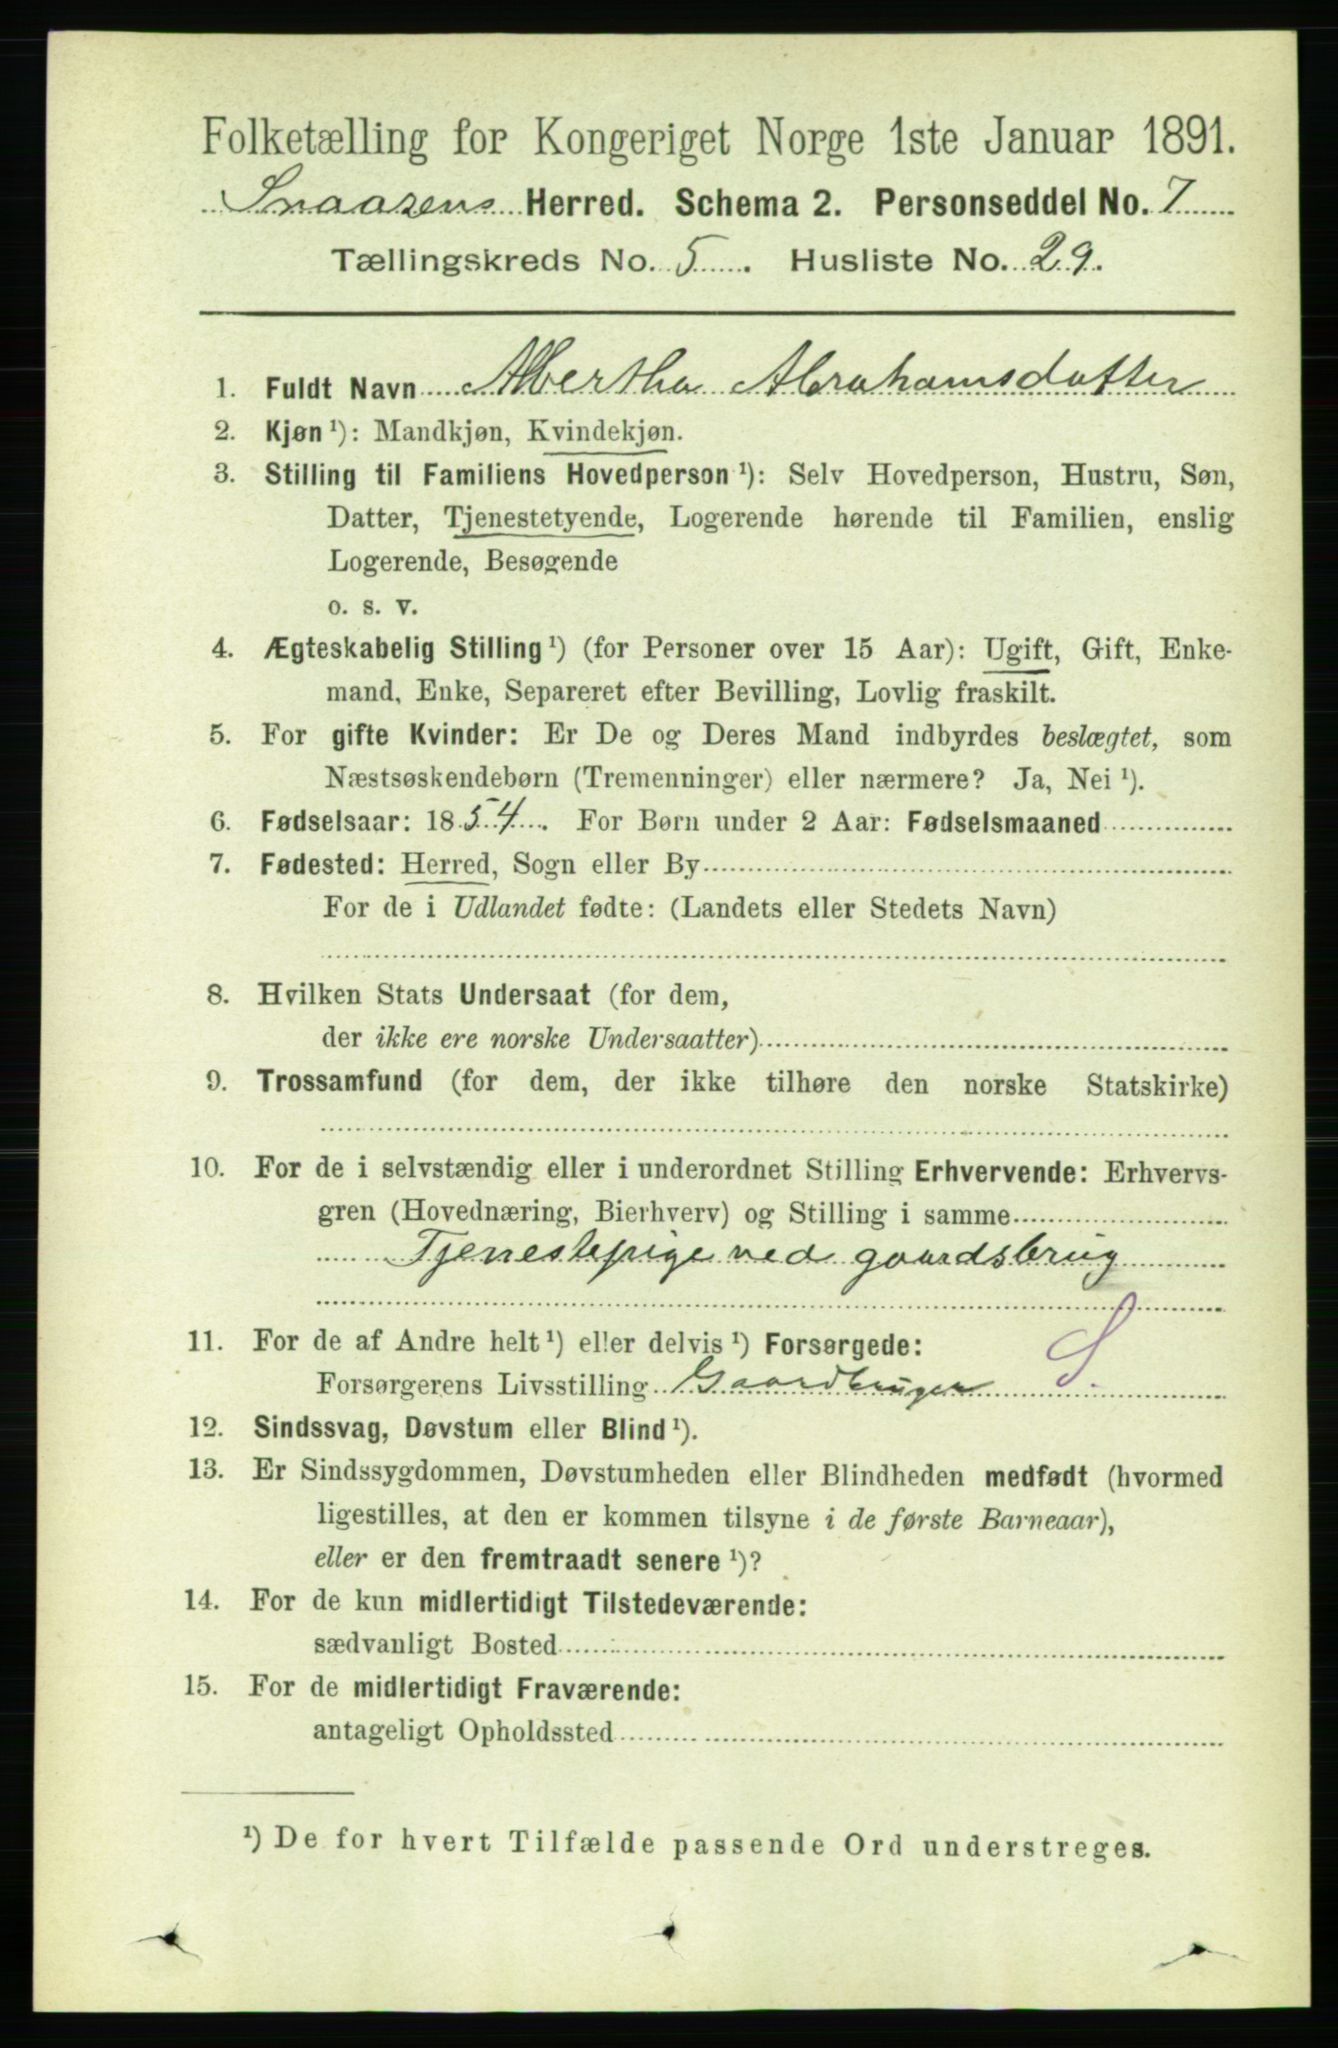 Folketælling for Kongeriget Norge 1ste Januar 1891.
Snaasens Herred. Schema 2. Personseddel No. 7
Tællingskreds No. 5. Husliste No. 29.
1. Fuldt Navn Albertha Abrahamsdatter
2. Kjøn ¹): Mandkjøn, Kvindekjøn.
3. Stilling til Familiens Hovedperson ¹): Selv Hovedperson, Hustru, Søn,
Datter, Tjenestetyende, Logerende hørende til Familien, enslig
Logerende, Besøgende
o. s. v.
4. Ægteskabelig Stilling ¹) (for Personer over 15 Aar): Ugift, Gift, Enke-
mand, Enke, Separeret efter Bevilling, Lovlig fraskilt.
5. For gifte Kvinder: Er De og Deres Mand indbyrdes beslægtet, som
Næstsøskendebørn (Tremenninger) eller nærmere? Ja, Nei ¹).
6. Fødselsaar: 1854. For Børn under 2 Aar: Fødselsmaaned
7. Fødested: Herred, Sogn eller By
For de i Udlandet fødte: (Landets eller Stedets Navn)
8. Hvilken Stats Undersaat (for dem,
der ikke ere norske Undersaatter)
9. Trossamfund (for dem, der ikke tilhøre den norske Statskirke)
10. For de i selvstændig eller i underordnet Stilling Erhvervende: Erhvervs-
gren (Hovednæring, Bierhverv) og Stilling i samme
Tjenestepige ved gaardsbrug
11. For de af Andre helt ¹) eller delvis ¹) Forsørgede: S.
Forsørgerens Livsstilling Gaardbruger
12. Sindssvag, Døvstum eller Blind ¹).
13. Er Sindssygdommen, Døvstumheden eller Blindheden medfødt (hvormed
ligestilles, at den er kommen tilsyne i de første Barneaar),
eller er den fremtraadt senere ¹)?
14. For de kun midlertidigt Tilstedeværende:
sædvanligt Bosted
15. For de midlertidigt Fraværende:
antageligt Opholdssted
¹) De for hvert Tilfælde passende Ord understreges.